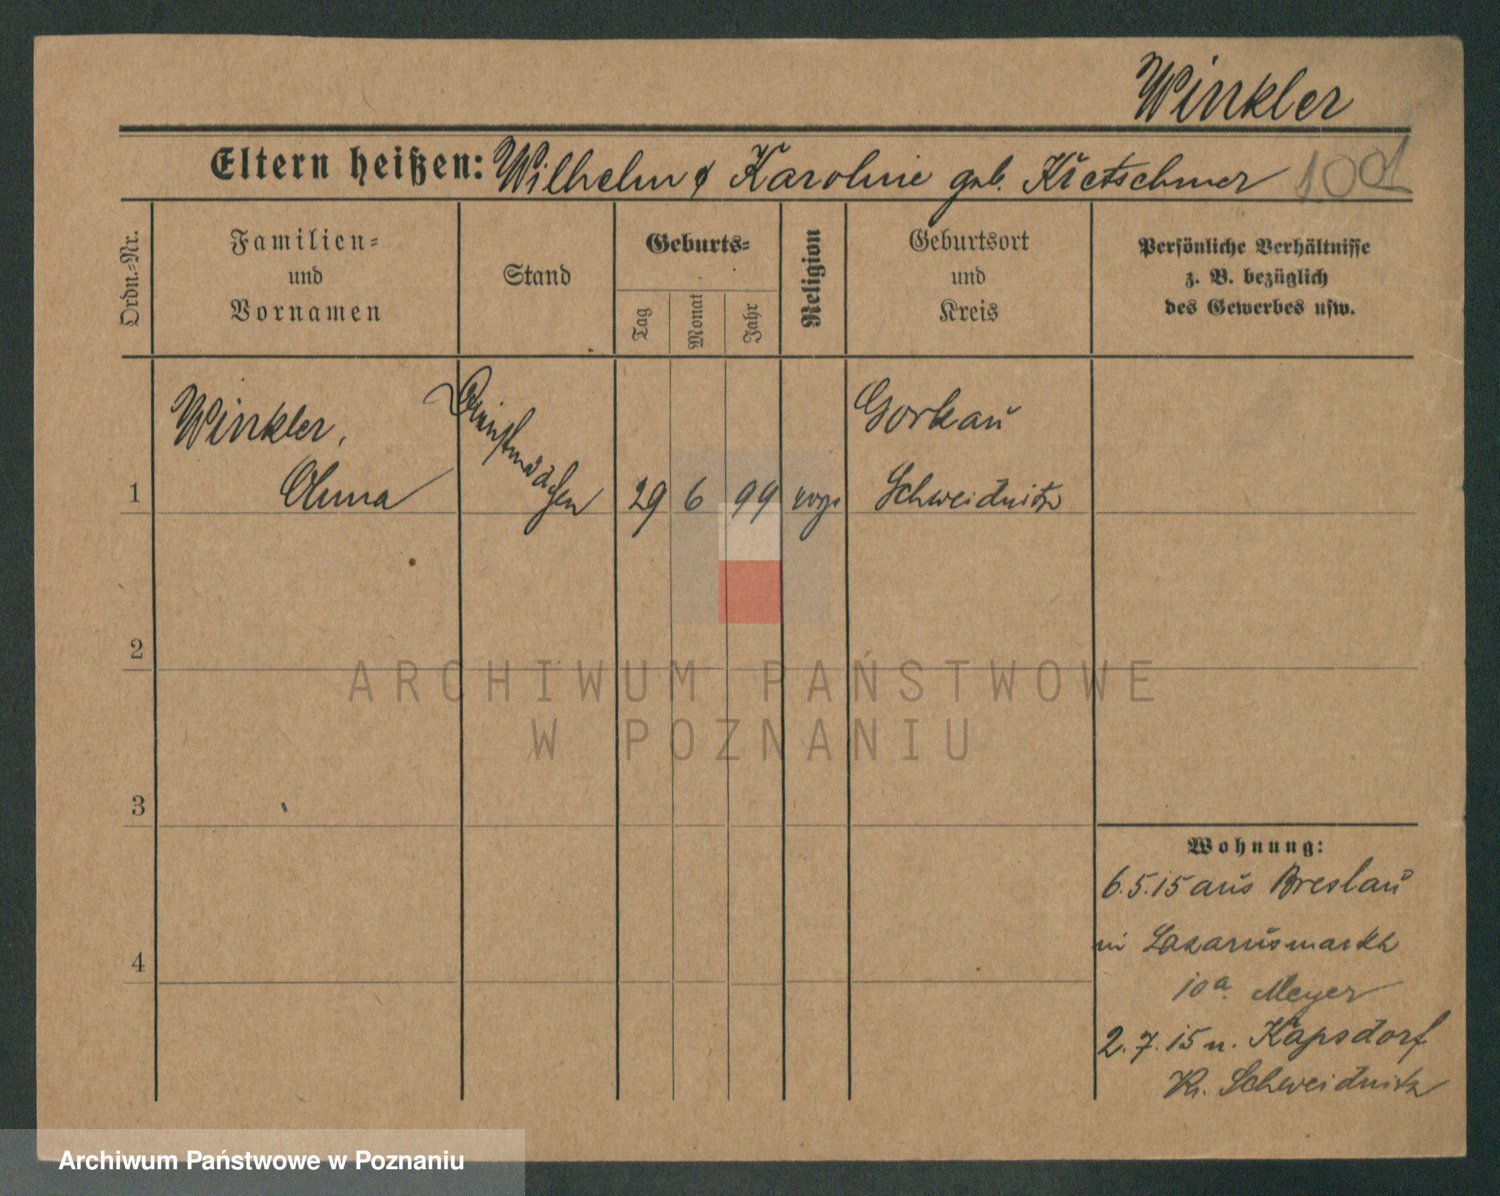 Winkler
Eltern heißen: Wilhelm & Karoline geb. Kretschmer 100
Ordn.-Nr.
Familien-
und
Vornamen
Stand
Geburts-
Tag
Monat
Jahr
Religion
Geburtsort
und
Kreis
Persönliche Verhältnisse
z. B. bezüglich
des Gewerbes usw.
1
Winkler,
Dienstmädchen
29
6
99
evgl
Gorkau
Schweidnitz
2
3
4
Wohnung:
6.5.15 aus Breslau
in Lazarusmarkt
10a. Meyer
2.7.15 n. Kapsdorf
Kr. Schweidnitz
ARCHIWUM PAŃSTWOWE
W POZNANIU
Archiwum Państwowe w Poznaniu